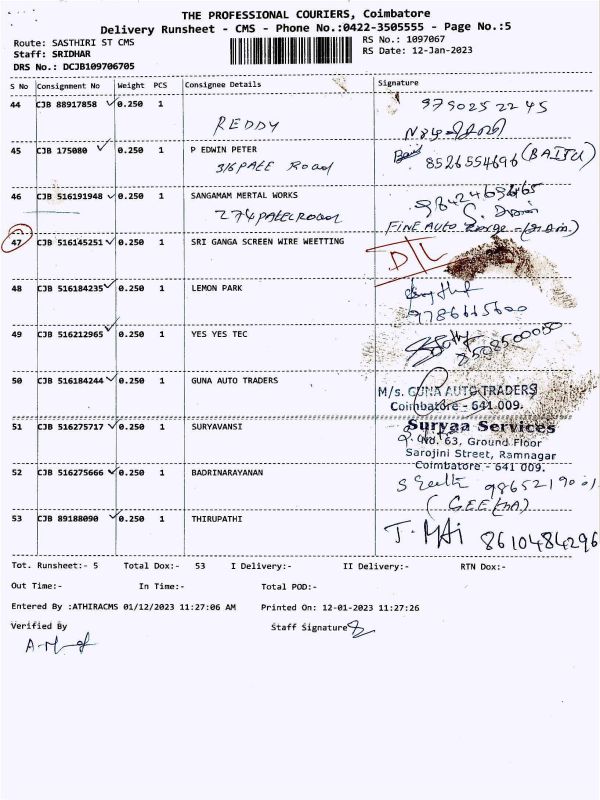 THE PROFESSIONAL COURIERS, Coimbatore
Delivery Runsheet - CMS - Phone No.:0422-3505555 - Page No.:5
Route: SASTHIRI ST CMS
RS No.: 1097067
Staff: SRIDHAR
RS Date: 12-Jan-2023
DRS No.: DCJB109706705
S No Consignment No Weight PCS Consignee Details Signature
44 CJB 88917858 0.250 1 9790252245
REDDY
45 CJB 175080 0.250 1 P EDWIN PETER
316 PATE Road 8526554696 (BAIJU)
46 CJB 516191948 0.250 1 SANGAMAM MERTAL WORKS
274 PATEL ROAD
FINE AUTO
47 CJB 516145251 0.250 1 SRI GANGA SCREEN WIRE WEETTING
D/L
48 CJB 516184235 0.250 1 LEMON PARK
9786615600
49 CJB 516212965 0.250 1 YES YES TEC
8508500050
50 CJB 516184244 0.250 1 GUNA AUTO TRADERS
M/s. GUNA AUTO TRADERS
Coimbatore - 641 009.
51 CJB 516275717 0.250 1 SURYAVANSI
Suryaa Services
No. 63, Ground Floor
Sarojini Street, Ramnagar
Coimbatore - 641 009.
52 CJB 516275666 0.250 1 BADRINARAYANAN
(GEETHA)
53 CJB 89188090 0.250 1 THIRUPATHI
T. MAi 8610484296
Tot. Runsheet:- 5 Total Dox:- 53 I Delivery:- II Delivery:- RTN Dox:-
Out Time:- In Time:- Total POD:-
Entered By :ATHIRACMS 01/12/2023 11:27:06 AM Printed On: 12-01-2023 11:27:26
Verified By Staff Signature